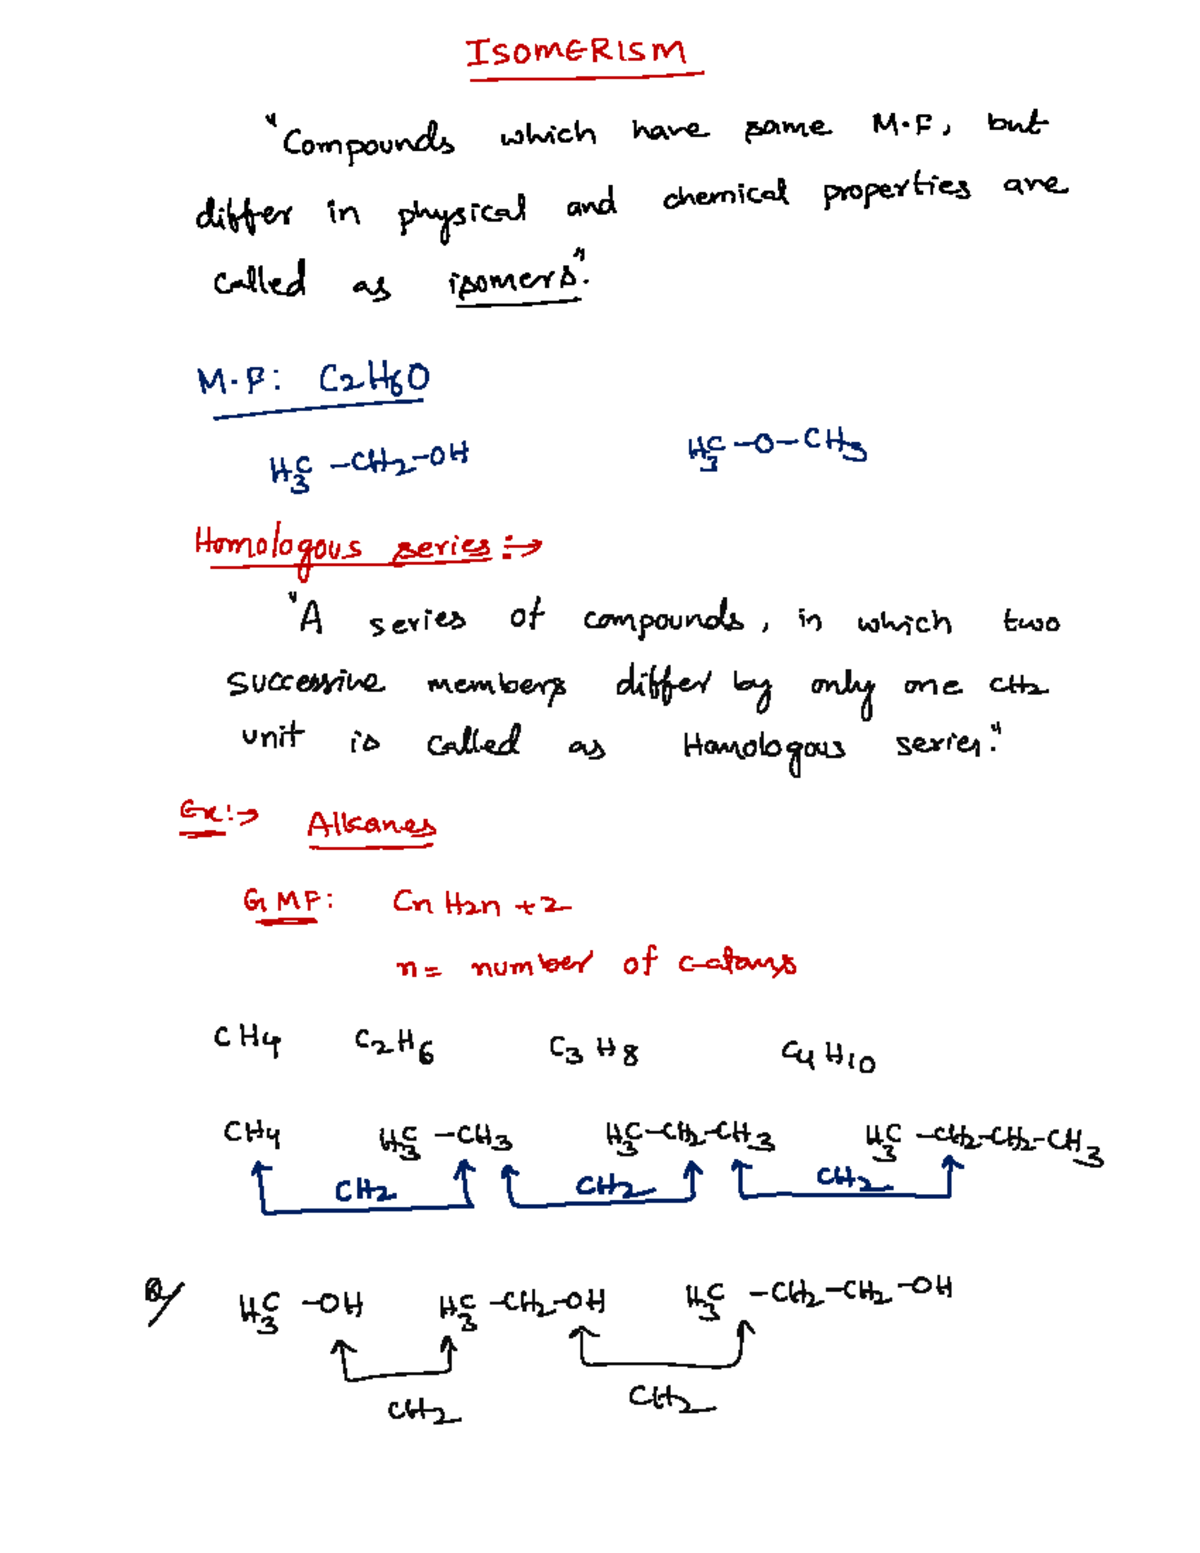 ISOMERISM
"Compounds which have same M.F, but
differ in physical and chemical properties are
called as isomers".
M.F: C2H6O
H3C-CH2-OH H3C-O-CH3
Homologous series:→
"A series of compounds, in which two
successive members differ by only one CH2
unit is called as Homologous series."
Ex:→ Alkanes
GMF: CnH2n+2
n= number of c-atoms
CH4 C2H6 C3H8 C4H10
CH4 H3C-CH3 H3C-CH2-CH3 H3C-CH2-CH2-CH3
CH2 CH2 CH2
Q/ H3C-OH H3C-CH2-OH H3C-CH2-CH2-OH
CH2 CH2